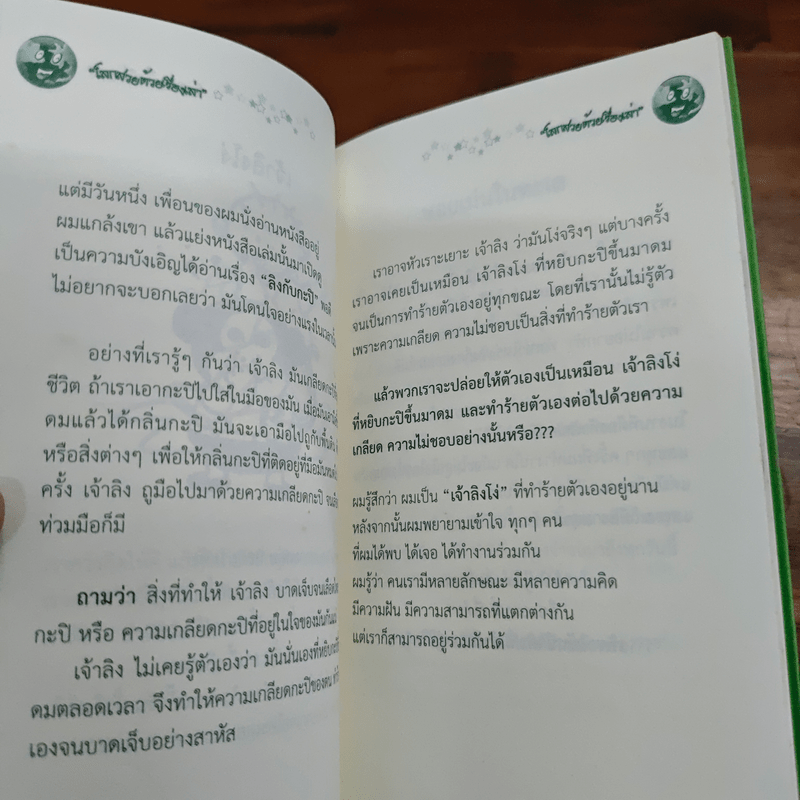 "โลกสวยด้วยเรื่องเล่า"
แต่มีวันหนึ่ง เพื่อนของผมนั่งอ่านหนังสืออยู่
ผมแกล้งเขา แล้วแย่งหนังสือเล่มนั้นมาเปิดดู
เป็นความบังเอิญได้อ่านเรื่อง "ลิงกับกะปิ" พอดี
ไม่อยากจะบอกเลยว่า มันโดนใจอย่างแรงในเวลานั้น
อย่างที่เรารู้ๆ กันว่า เจ้าลิง มันเกลียดกะปิ
ชีวิต ถ้าเราเอากะปิไปใส่ในมือของมัน เมื่อมัน
ดมแล้วได้กลิ่นกะปิ มันจะเอามือไปถูกับพื้นดิน
หรือสิ่งต่างๆ เพื่อให้กลิ่นกะปิที่ติดอยู่ที่มือมันหมด
ครั้ง เจ้าลิง ถูมือไปมาด้วยความเกลียดกะปิ จน
ท่วมมือก็มี
ถามว่า สิ่งที่ทำให้ เจ้าลิง บาดเจ็บจนเลือด
กะปิ หรือ ความเกลียดกะปิที่อยู่ในใจของมันกันแน่
เจ้าลิง ไม่เคยรู้ตัวเองว่า มันนั่นเองที่หยิบกะปิ
ดมตลอดเวลา จึงทำให้ความเกลียดกะปิของตน
เองจนบาดเจ็บอย่างสาหัส
"โลกสวยด้วยเรื่องเล่า"
เราอาจหัวเราะเยาะ เจ้าลิง ว่ามันโง่จริงๆ แต่บางครั้ง
เราอาจเคยเป็นเหมือน เจ้าลิงโง่ ที่หยิบกะปิขึ้นมาดม
จนเป็นการทำร้ายตัวเองอยู่ทุกขณะ โดยที่เรานั้นไม่รู้ตัว
เพราะความเกลียด ความไม่ชอบเป็นสิ่งที่ทำร้ายตัวเรา
แล้วพวกเราจะปล่อยให้ตัวเองเป็นเหมือน เจ้าลิงโง่
ที่หยิบกะปิขึ้นมาดม และทำร้ายตัวเองต่อไปด้วยความ
เกลียด ความไม่ชอบอย่างนั้นหรือ???
ผมรู้สึกว่า ผมเป็น "เจ้าลิงโง่" ที่ทำร้ายตัวเองอยู่นาน
หลังจากนั้นผมพยายามเข้าใจ ทุกๆ คน
ที่ผมได้พบ ได้เจอ ได้ทำงานร่วมกัน
ผมรู้ว่า คนเรามีหลายลักษณะ มีหลายความคิด
มีความฝัน มีความสามารถที่แตกต่างกัน
แต่เราก็สามารถอยู่ร่วมกันได้